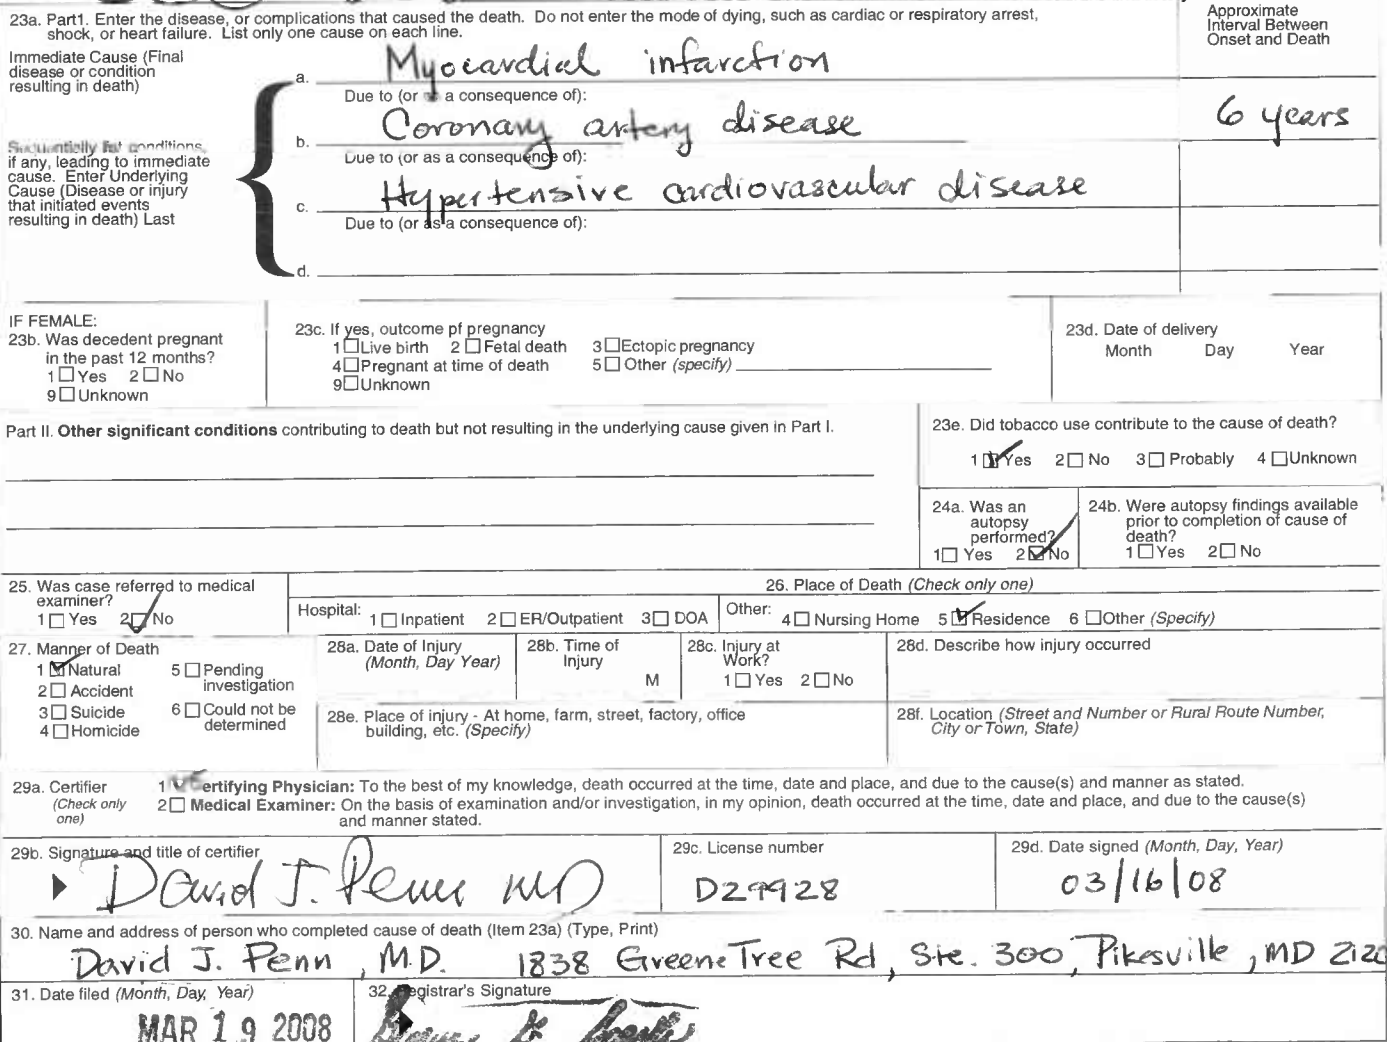 23a. Part1. Enter the disease, or complications that caused the death. Do not enter the mode of dying, such as cardiac or respiratory arrest,
shock, or heart failure. List only one cause on each line.
Approximate
Interval Between
Onset and Death
Immediate Cause (Final
disease or condition
resulting in death)
a. Myocardial infarction
Due to (or as a consequence of):
b. Coronary artery disease
6 years
Sequentially list conditions,
if any, leading to immediate
cause. Enter Underlying
Cause (Disease or injury
that initiated events
resulting in death) Last
Due to (or as a consequence of):
c. Hypertensive cardiovascular disease
Due to (or as a consequence of):
d.
IF FEMALE:
23b. Was decedent pregnant
in the past 12 months?
1 Yes 2 No
9 Unknown
23c. If yes, outcome pf pregnancy
1 Live birth 2 Fetal death 3 Ectopic pregnancy
4 Pregnant at time of death 5 Other (specify)
9 Unknown
23d. Date of delivery
Month Day Year
Part II. Other significant conditions contributing to death but not resulting in the underlying cause given in Part I.
23e. Did tobacco use contribute to the cause of death?
1 Yes 2 No 3 Probably 4 Unknown
24a. Was an
autopsy
performed?
1 Yes 2 No
24b. Were autopsy findings available
prior to completion of cause of
death?
1 Yes 2 No
25. Was case referred to medical
examiner?
1 Yes 2 No
26. Place of Death (Check only one)
Hospital: 1 Inpatient 2 ER/Outpatient 3 DOA
Other: 4 Nursing Home 5 Residence 6 Other (Specify)
27. Manner of Death
1 Natural 5 Pending
investigation
2 Accident
3 Suicide 6 Could not be
determined
4 Homicide
28a. Date of Injury
(Month, Day Year)
28b. Time of
Injury
M
28c. Injury at
Work?
1 Yes 2 No
28d. Describe how injury occurred
28e. Place of injury - At home, farm, street, factory, office
building, etc. (Specify)
28f. Location (Street and Number or Rural Route Number,
City or Town, State)
29a. Certifier
(Check only
one)
1 ertifying Physician: To the best of my knowledge, death occurred at the time, date and place, and due to the cause(s) and manner as stated.
2 Medical Examiner: On the basis of examination and/or investigation, in my opinion, death occurred at the time, date and place, and due to the cause(s)
and manner stated.
29b. Signature and title of certifier
David J. Penn MD
29c. License number
D29928
29d. Date signed (Month, Day, Year)
03/16/08
30. Name and address of person who completed cause of death (Item 23a) (Type, Print)
David J. Penn, M.D. 1838 Greene Tree Rd, Ste. 300, Pikesville, MD 2120
31. Date filed (Month, Day, Year)
MAR 19 2008
32. Registrar's Signature